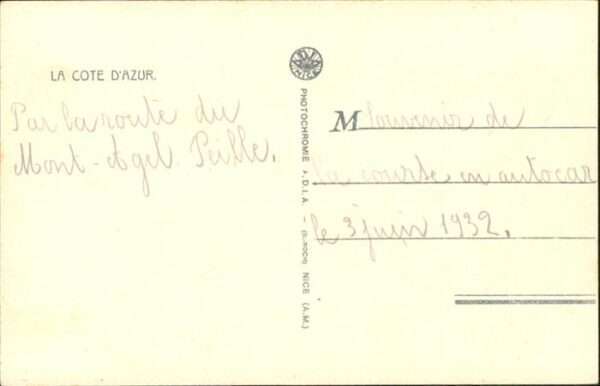 LA COTE D'AZUR.
Par la route du
Mont-Agel Peille.
PHOTOCHROMIE A.D.I.A. - NICE (A.M.)
M Souvenir de
la course en autocar
le 3 juin 1932.